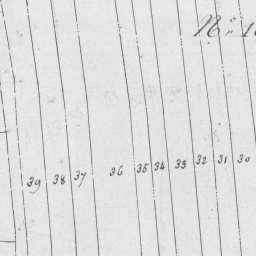 No. 1
39 38 37 36 35 34 33 32 31 30